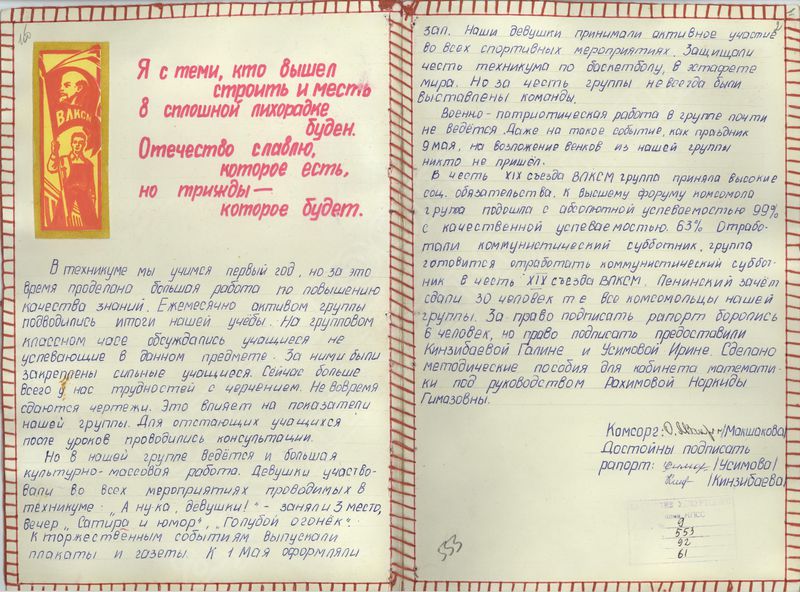 160
ВЛКСМ
Я с теми, кто вышел
строить и месть
в сплошной лихорадке
буден.
Отечество славлю,
которое есть,
но трижды —
которое будет.
В техникуме мы учимся первый год, но за это
время проделана большая работа по повышению
качества знаний. Ежемесячно активом группы
подводились итоги нашей учёбы. На групповом
классном часе обсуждались учащиеся не
успевающие в данном предмете. За ними были
закреплены сильные учащиеся. Сейчас больше
всего у нас трудностей с черчением. Не вовремя
сдаются чертежи. Это влияет на показатели
нашей группы. Для отстающих учащихся
после уроков проводились консультации.
Но в нашей группе ведётся и большая
культурно-массовая работа. Девушки участво-
вали во всех мероприятиях проводимых в
техникуме. „А ну ка, девушки!" - заняли 3 место,
вечер „Сатира и юмор", „Голубой огонёк".
К торжественным событиям выпускали
плакаты и газеты. К 1 Мая оформляли
2
зал. Наши девушки принимали активное участие
во всех спортивных мероприятиях. Защищали
честь техникума по баскетболу, в эстафете
мира. Но за честь группы не всегда были
выставлены команды.
Военно-патриотическая работа в группе почти
не ведётся. Даже на такое событие, как праздник
9 мая, на возложение венков из нашей группы
никто не пришёл.
В честь XIX съезда ВЛКСМ группа приняла высокие
соц. обязательства. К высшему форуму комсомола
группа подошла с абсолютной успеваемостью 99%
с качественной успеваемостью 63%. Отрабо-
тали коммунистический субботник, группа
готовится отработать коммунистический суббот-
ник в честь XIX съезда ВЛКСМ. Ленинский зачёт
сдали 30 человек т е все комсомольцы нашей
группы. За право подписать рапорт боролись
6 человек, но право подписать предоставили
Кинзибаевой Галине и Усимовой Ирине. Сделано
методические пособия для кабинета математи-
ки под руководством Рахимовой Наркиды
Гимазовны.
Комсорг: /Макшакова/
Достойны подписать
рапорт: /Усимова/
/Кинзибаева/
9
553
92
61
553